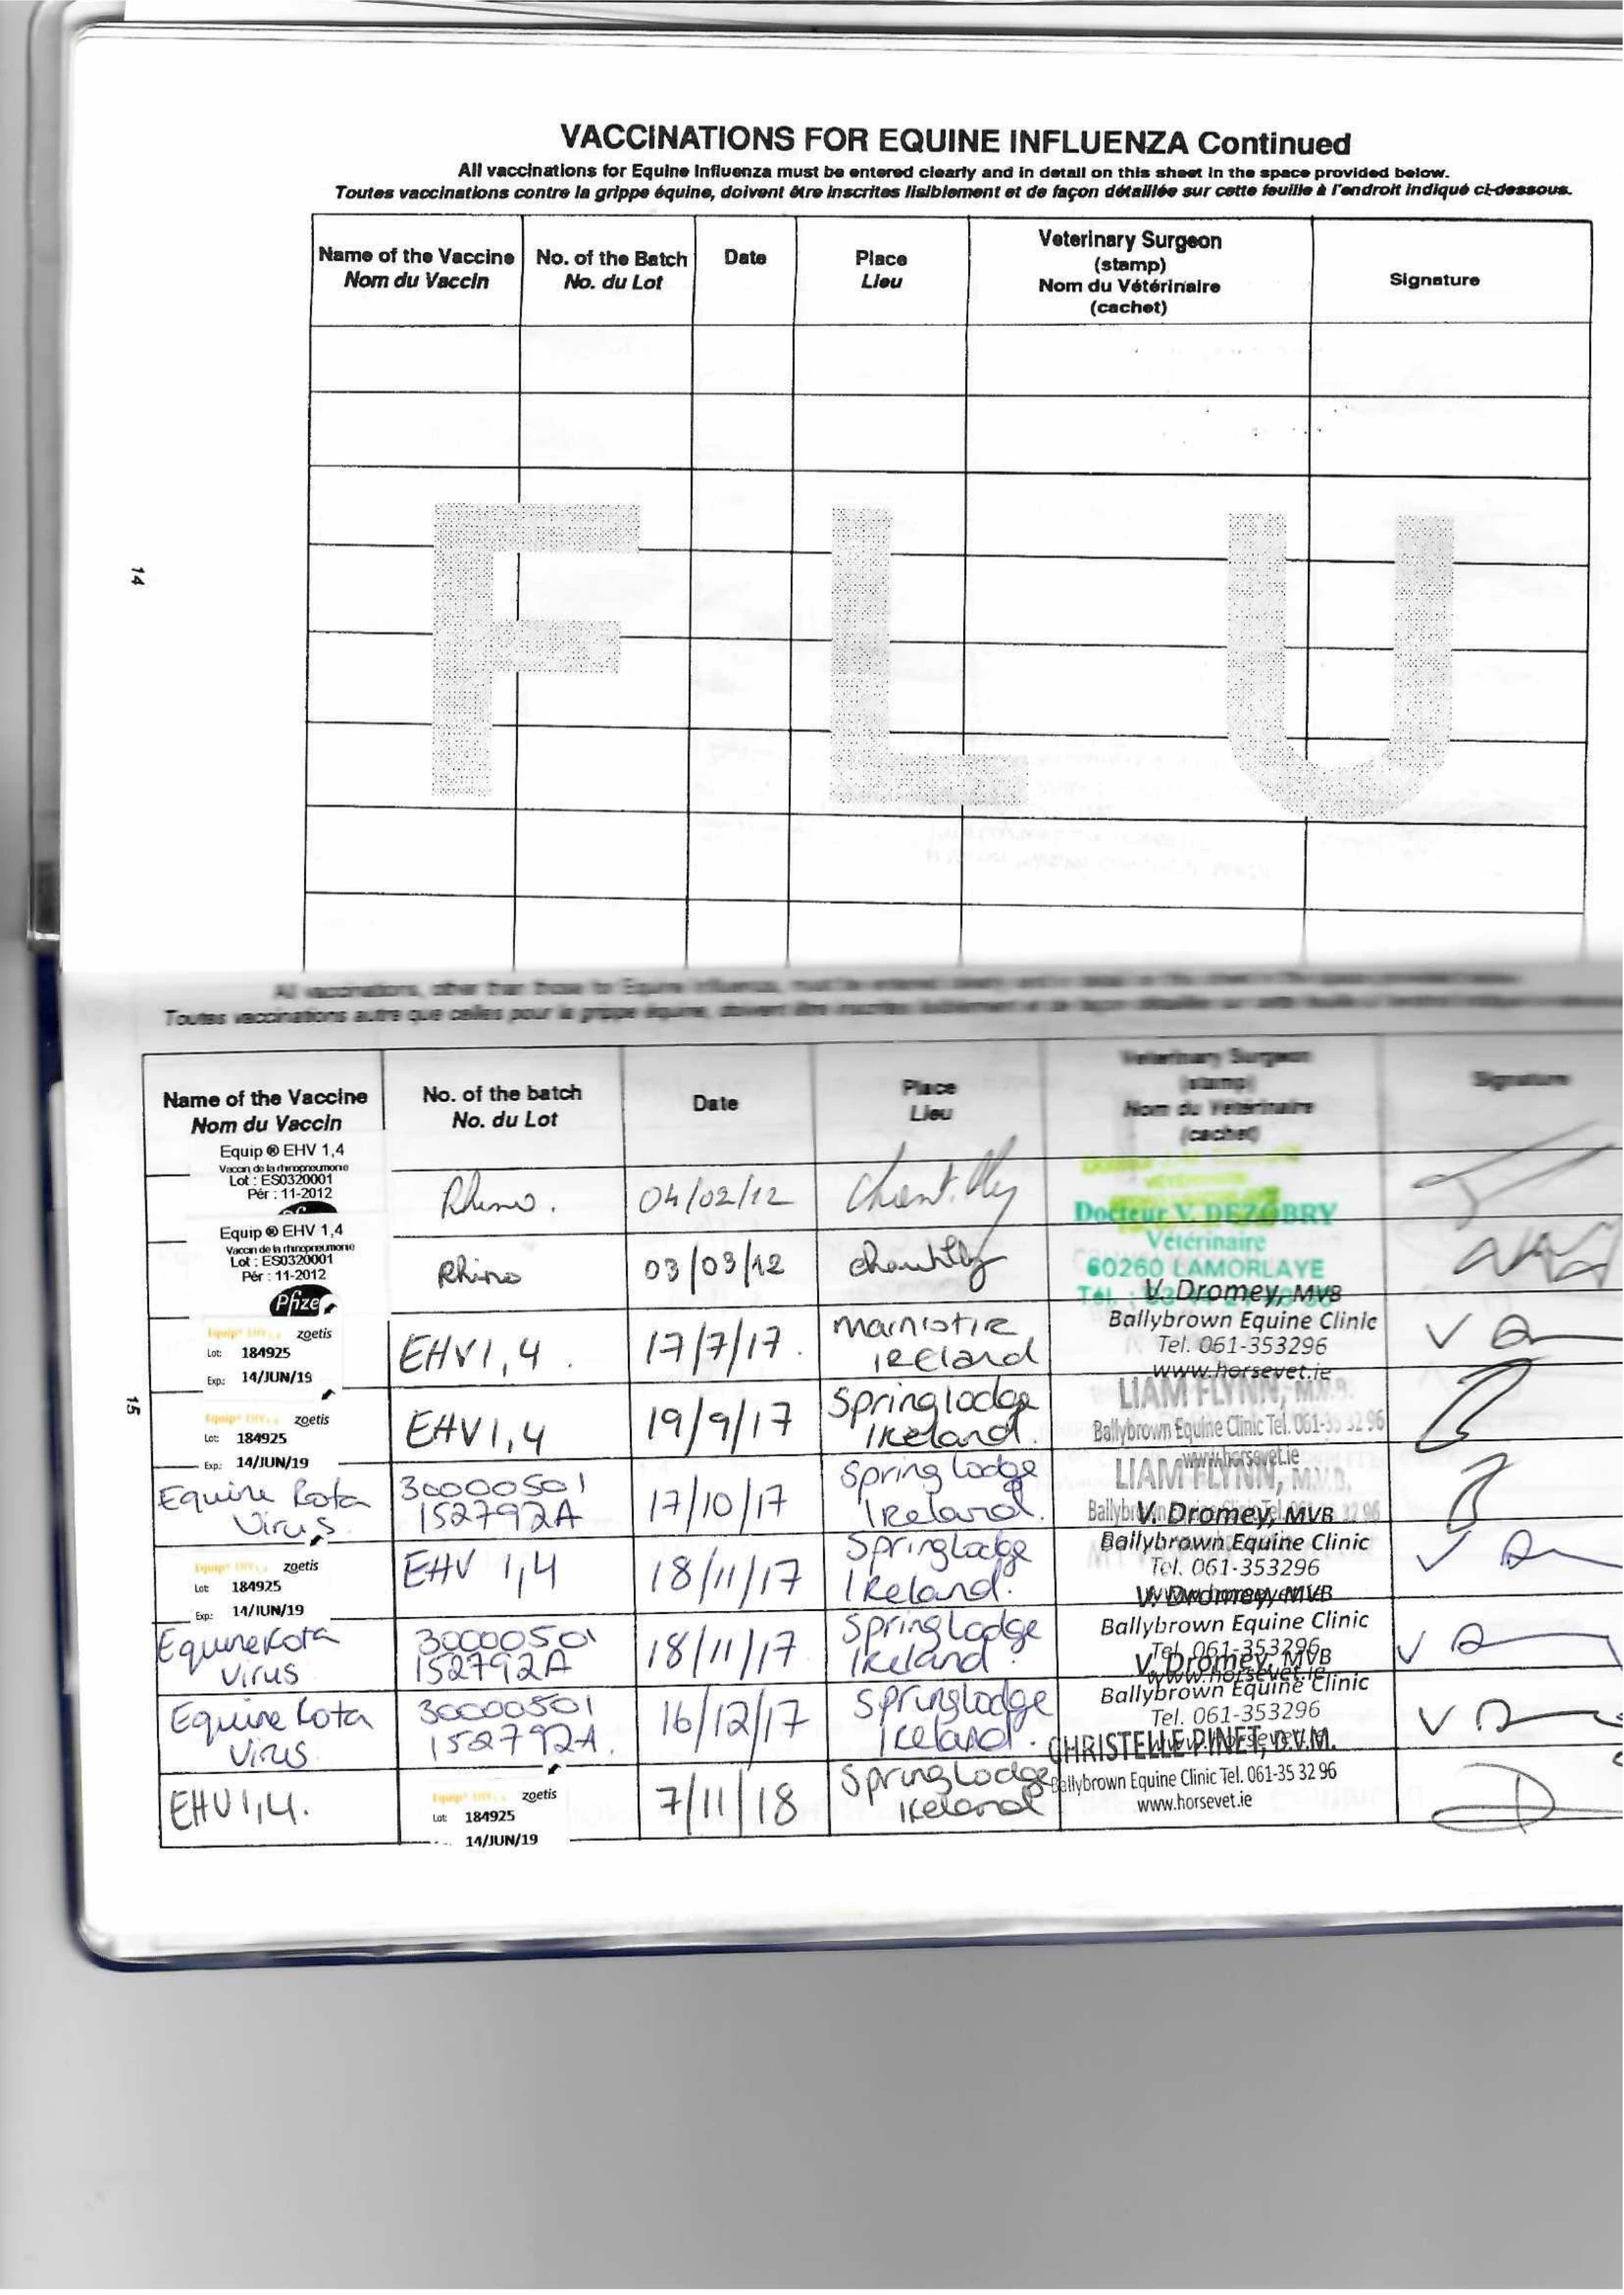 VACCINATIONS FOR EQUINE INFLUENZA Continued
All vaccinations for Equine Influenza must be entered clearly and in detail on this sheet in the space provided below.
Toutes vaccinations contre la grippe équine, doivent être inscrites lisiblement et de façon détaillée sur cette feuille à l'endroit indiqué ci-dessous.
Name of the Vaccine No. of the Batch Date Place Veterinary Surgeon Signature
Nom du Vaccin No. du Lot Lieu (stamp)
Nom du Vétérinaire
(cachet)
FLU
14
All vaccinations, other than those for Equine Influenza, must be entered clearly and in detail on this sheet in the space provided below.
Toutes vaccinations autre que celles pour la grippe équine, doivent être inscrites lisiblement et de façon détaillée sur cette feuille à l'endroit indiqué
Name of the Vaccine No. of the batch Date Place Veterinary Surgeon Signature
Nom du Vaccin No. du Lot Lieu (stamp)
Nom du Vétérinaire
(cachet)
Equip ® EHV 1,4
Vaccin de la rhinopneumonie
Lot : ES0320001
Pér : 11-2012
Rhino. 04/02/12 Chantilly
Equip ® EHV 1,4
Vaccin de la rhinopneumonie
Lot : ES0320001
Pér : 11-2012
Pfizer
Rhino 03/03/12 Chantilly
Docteur V. DEZOBRY
Vétérinaire
60260 LAMORLAYE
zoetis
Lot: 184925
Exp: 14/JUN/19
EHV1,4. 17/7/17. Mainistir
Ireland
V. Dromey, MVB
Ballybrown Equine Clinic
Tel. 061-353296
www.horsevet.ie
15
zoetis
Lot: 184925
Exp: 14/JUN/19
EHV1,4 19/9/17 Springlodge
Ireland.
LIAM FLYNN, M.V.B.
Ballybrown Equine Clinic Tel. 061-35 32 96
www.horsevet.ie
Equine Rota
Virus
30000501
152792A
17/10/17 Spring Lodge
Ireland.
LIAM FLYNN, M.V.B.
zoetis
Lot: 184925
Exp: 14/JUN/19
EHV 1,4 18/11/17 Springlodge
Ireland.
V. Dromey, MVB
Ballybrown Equine Clinic
Tel. 061-353296
Equine Rota
Virus
30000501
152792A
18/11/17 SpringLodge
Ireland
V. Dromey, MVB
Ballybrown Equine Clinic
Tel. 061-353296
www.horsevet.ie
Equine Rota
Virus
30000501
152792A.
16/12/17 Springlodge
Ireland.
V. Dromey, MVB
Ballybrown Equine Clinic
Tel. 061-353296
EHV1,4.
zoetis
Lot: 184925
14/JUN/19
7/11/18 SpringLodge
Ireland
CHRISTELLE PINET, D.V.M.
Ballybrown Equine Clinic Tel. 061-35 32 96
www.horsevet.ie